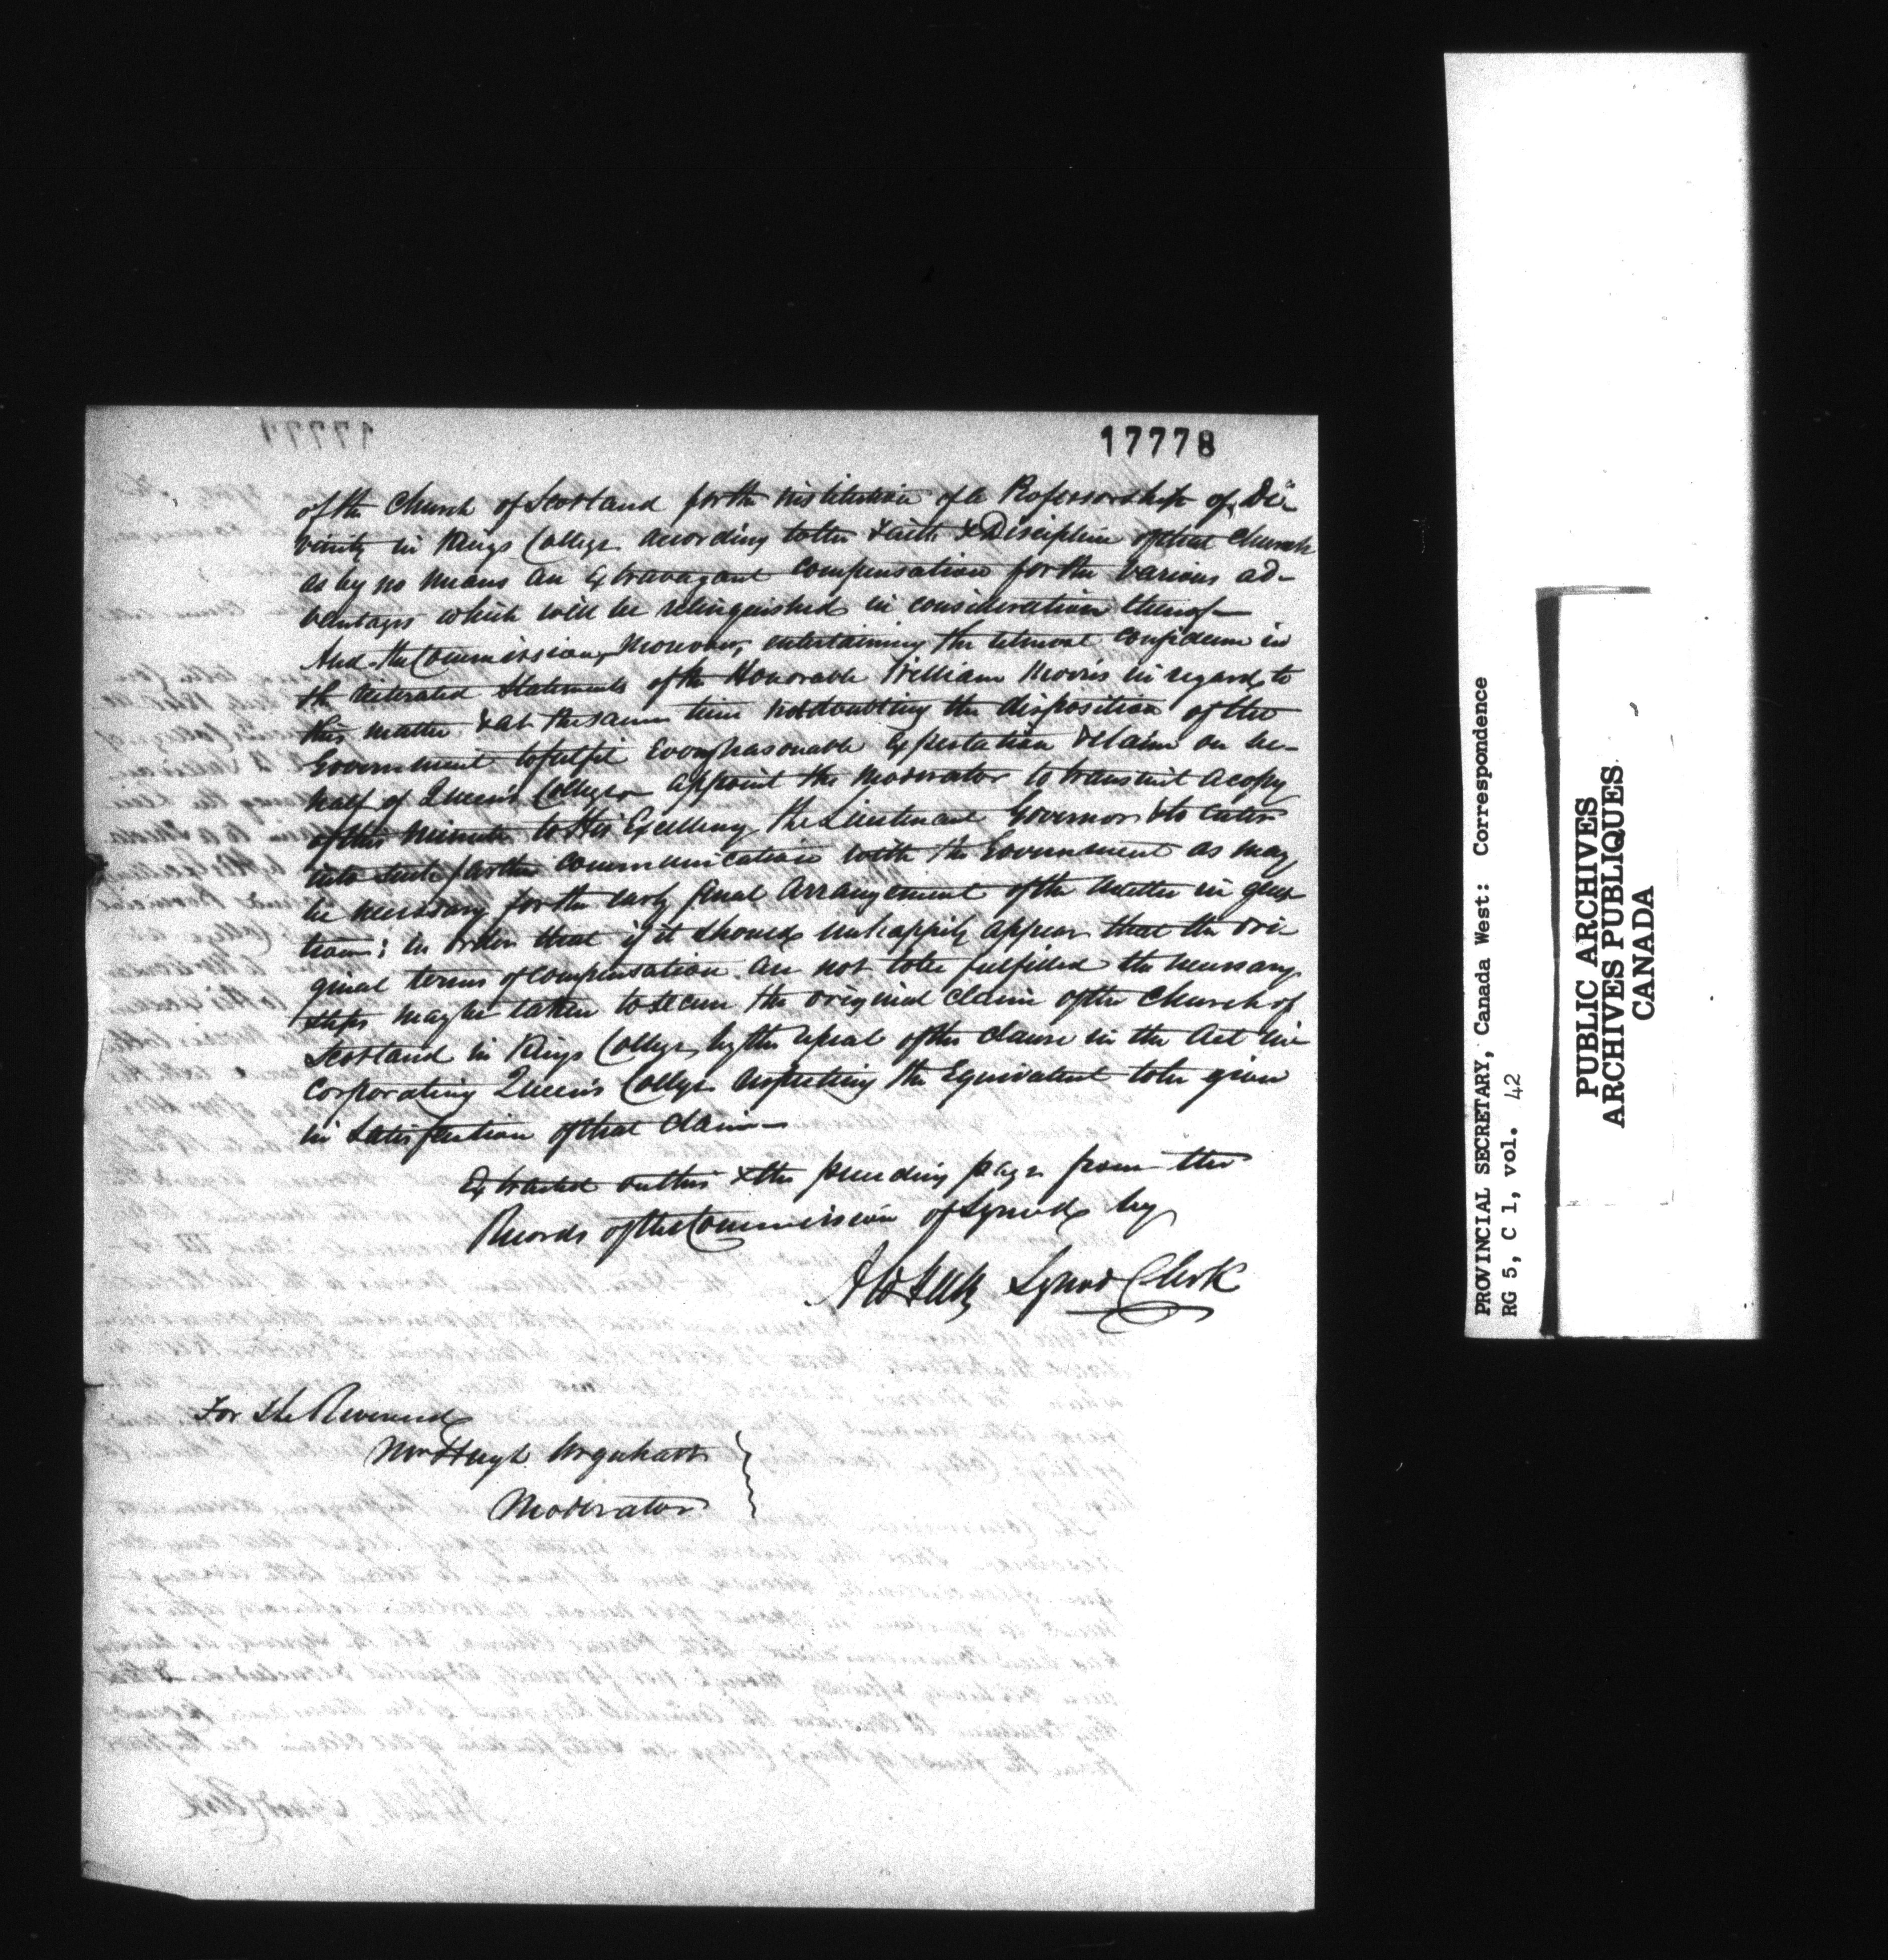 17778
of the Church of Scotland for the institution of a Professorship of Di-
vinity in Kings College according to the Faith & Discipline of that Church
as by no means an Extravagant compensation for the various ad-
vantages which will be relinquished in consideration thereof—
And the Commission, moreover, entertaining the utmost confidence in
the reiterated statements of the Honorable William Morris in regard to
this matter & at the same time not doubting the disposition of the
Government to fulfil every reasonable Expectation & claim on be-
half of Queen's College appoint the Moderator to transmit a copy
of this Minute to His Excellency the Lieutenant Governor & to enter
into such further communication with the Government as may
be necessary for the early final arrangement of the matter in ques-
tion; in order that if it should unhappily appear that the ori-
ginal terms of compensation are not to be fulfilled the necessary
steps may be taken to secure the original claim of the Church of
Scotland in Kings College, by the repeal of the clause in the Act in-
corporating Queen's College respecting the Equivalent to be given
in satisfaction of that claim—
Extracted on this & the preceding page from the
Records of the Commission of Synod by
Synod Clerk
For The Reverend
Mr Hugh Urquhart
Moderator
PROVINCIAL SECRETARY, Canada West: Correspondence
RG 5, C 1, vol. 42
PUBLIC ARCHIVES
ARCHIVES PUBLIQUES
CANADA